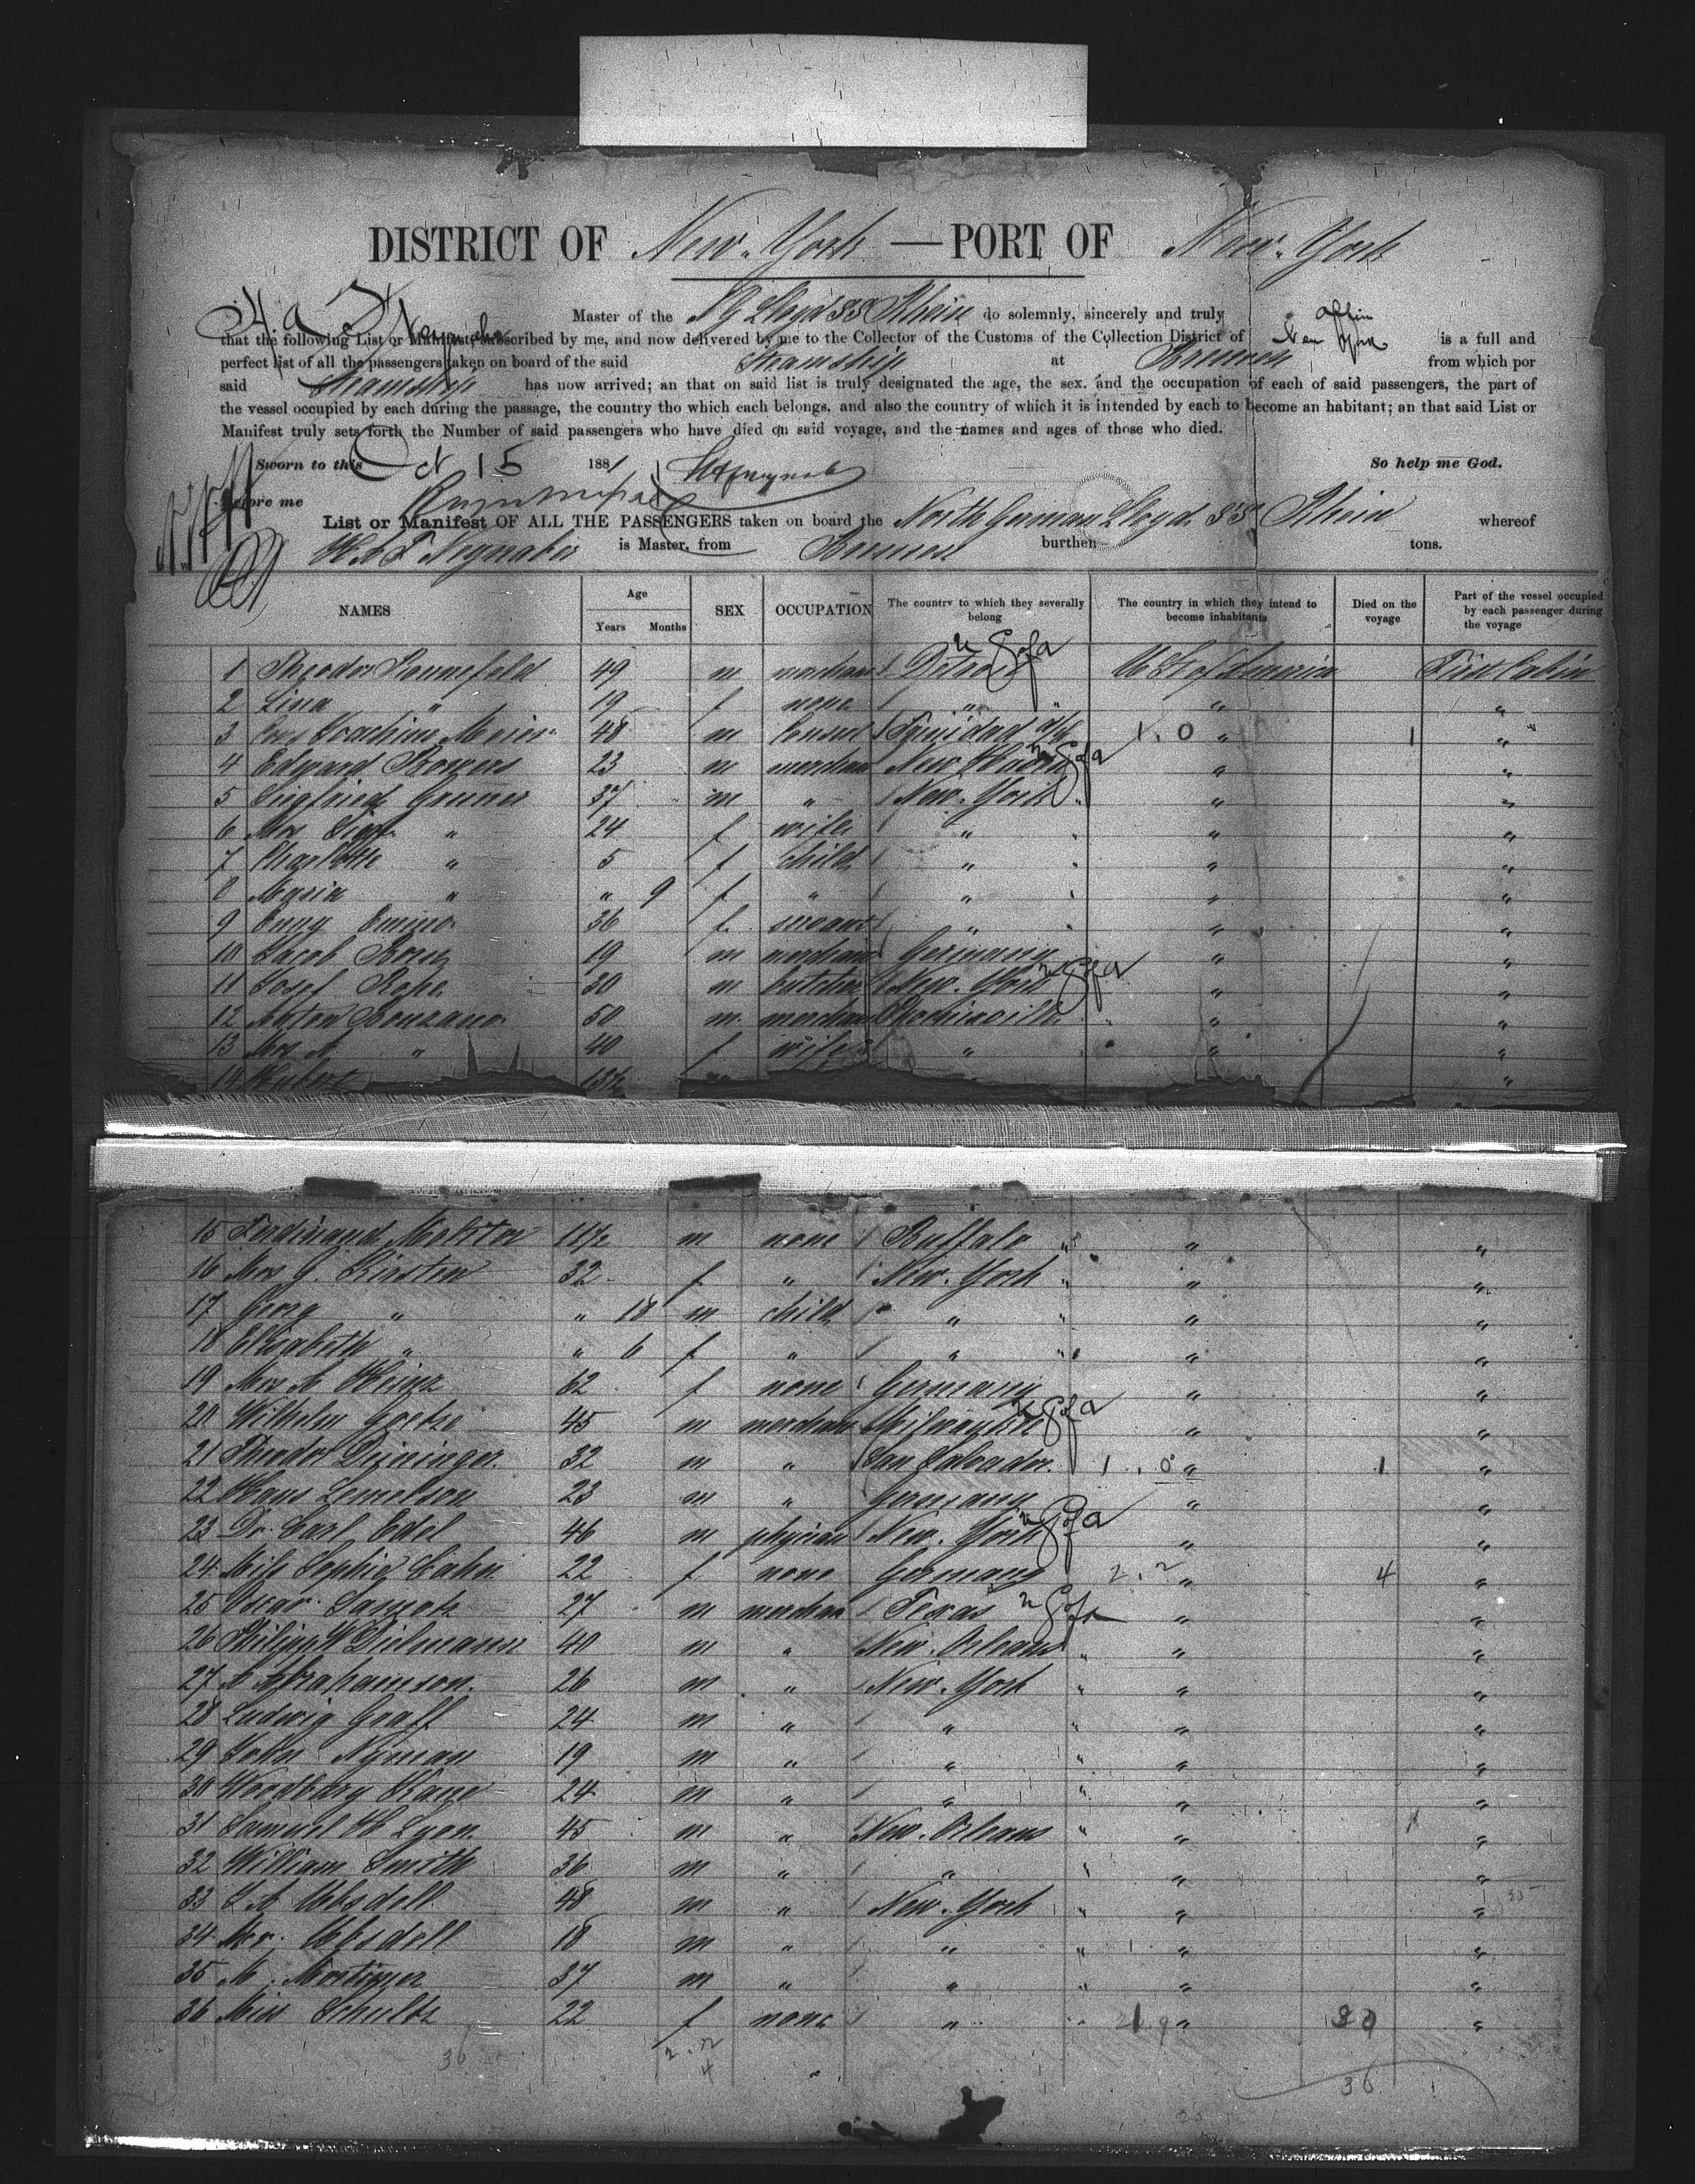 DISTRICT OF New York —PORT OF New York
Master of the N G Lloyd SS Rhein do solemnly, sincerely and truly affirm
that the following List or Manifest, subscribed by me, and now delivered by me to the Collector of the Customs of the Collection District of New York is a full and
perfect list of all the passengers taken on board of the said Steamship at Bremen from which por
said Steamship has now arrived; an that on said list is truly designated the age, the sex, and the occupation of each of said passengers, the part of
the vessel occupied by each during the passage, the country tho which each belongs, and also the country of which it is intended by each to become an habitant; an that said List or
Manifest truly sets forth the Number of said passengers who have died on said voyage, and the names and ages of those who died.
Sworn to this Oct 15 1881 So help me God.
Before me
List or Manifest OF ALL THE PASSENGERS taken on board the North German Lloyd SS Rhein whereof
H A F Neynaber is Master, from Bremen burthen tons.
NAMES Age Years Months SEX OCCUPATION The country to which they severally belong The country in which they intend to become inhabitants Died on the voyage Part of the vessel occupied by each passenger during the voyage
1 Theodor Sonnefeld 49 m merchant Detroit U S of America First Cabin
2 Lina " 19 f none " " "
3 Joachim Meier 48 m Consul Trinidad 1. 0 " 1 "
4 Edward Bowers 23 m merchant New Haven " "
5 Siegfried Gruner 37 m " New York " "
6 Mrs Siegfr " 24 f wife " " "
7 Charlotte " 5 f child " " "
8 Maria " " 9 f " " " "
9 36 f servant " " "
10 Jacob 19 m merchant Germany " "
11 Josef 30 m butcher New York " "
12 Anton 50 m merchant " "
13 Mrs A " 40 f wife " " "
14 "
15 Ferdinand 11½ m none Buffalo " " "
16 Mrs G. Kirsten 32 f " New York " " "
17 Georg " " 18 m child " " " "
18 Elisabeth " " 6 f " " " " "
19 Mrs A Heinz 62 f none Germany " "
20 Wilhelm Goetze 45 m merchant Milwaukee " "
21 Theodor Deininger 32 m " San Salvador 1. 0 " 1 "
22 Hans Lemelson 23 m " Germany " "
23 Dr. Carl Edel 46 m physician New York " "
24 Miss Sophie Cahn 22 f none Germany 2. 2 " 4 "
25 Oscar Samosch 27 m merchan Texas " "
26 Philipp W Dielmann 40 m " New Orleans " " "
27 A Abrahamson 26 m " New York " " "
28 Ludwig Graff 24 m " " " " "
29 John Nyman 19 m " " " " "
30 Woodbury Kane 24 m " " " " "
31 Samuel H Lyon 45 m " New Orleans " " "
32 William Smith 36 m " " " " "
33 Ubsdell 48 m " New York " " "
34 Mr. Ubsdell 18 m " " " " "
35 M. Mortimer 37 m " " " " "
36 Miss Schultz 22 f none " " 21. 9 " 30 "
36 2. 2
4
36